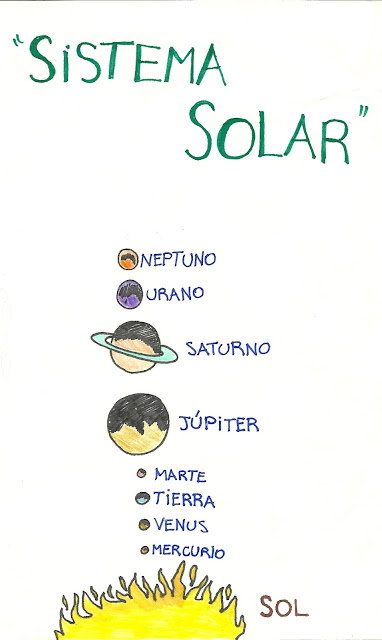 "SiSTEMA
SOLAR"
NEPTUNO
URANO
SATURNO
JÚPiTER
MARTE
TiERRA
VENUS
MERCURiO
SOL